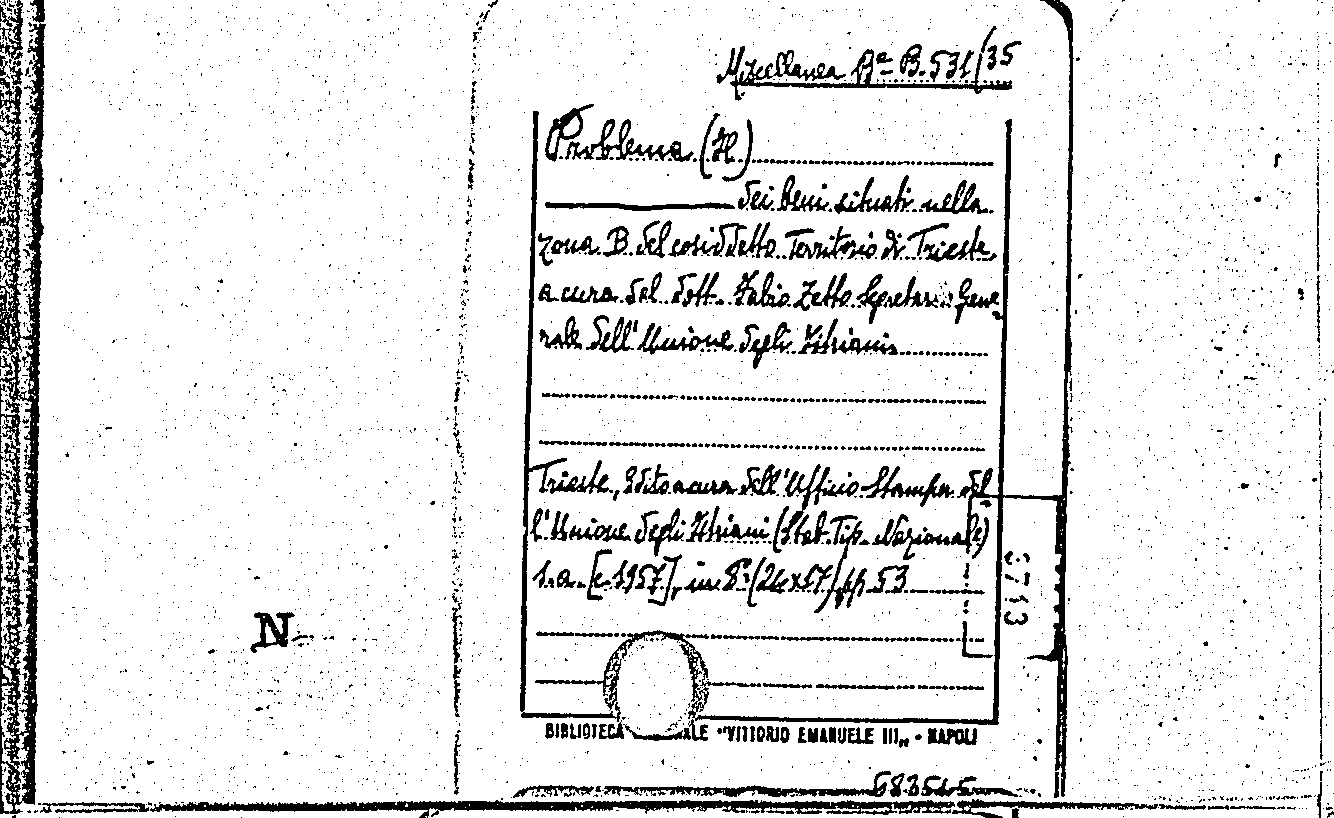 Miscellanea Bª B. 531/35
Problema (Il)
dei beni situati nella
zona B del cosiddetto Territorio di Trieste
a cura del dott. Fabio Zetto Segretario Gene
rale dell'Unione degli Istriani
Trieste, Edito a cura dell'Ufficio Stampa del
l'Unione degli Istriani (Stab. Tip. Nazionale)
s.a. [c. 1957], in 8° (24x17) pp 53
5713
N
BIBLIOTECA "VITTORIO EMANUELE III„ - NAPOLI